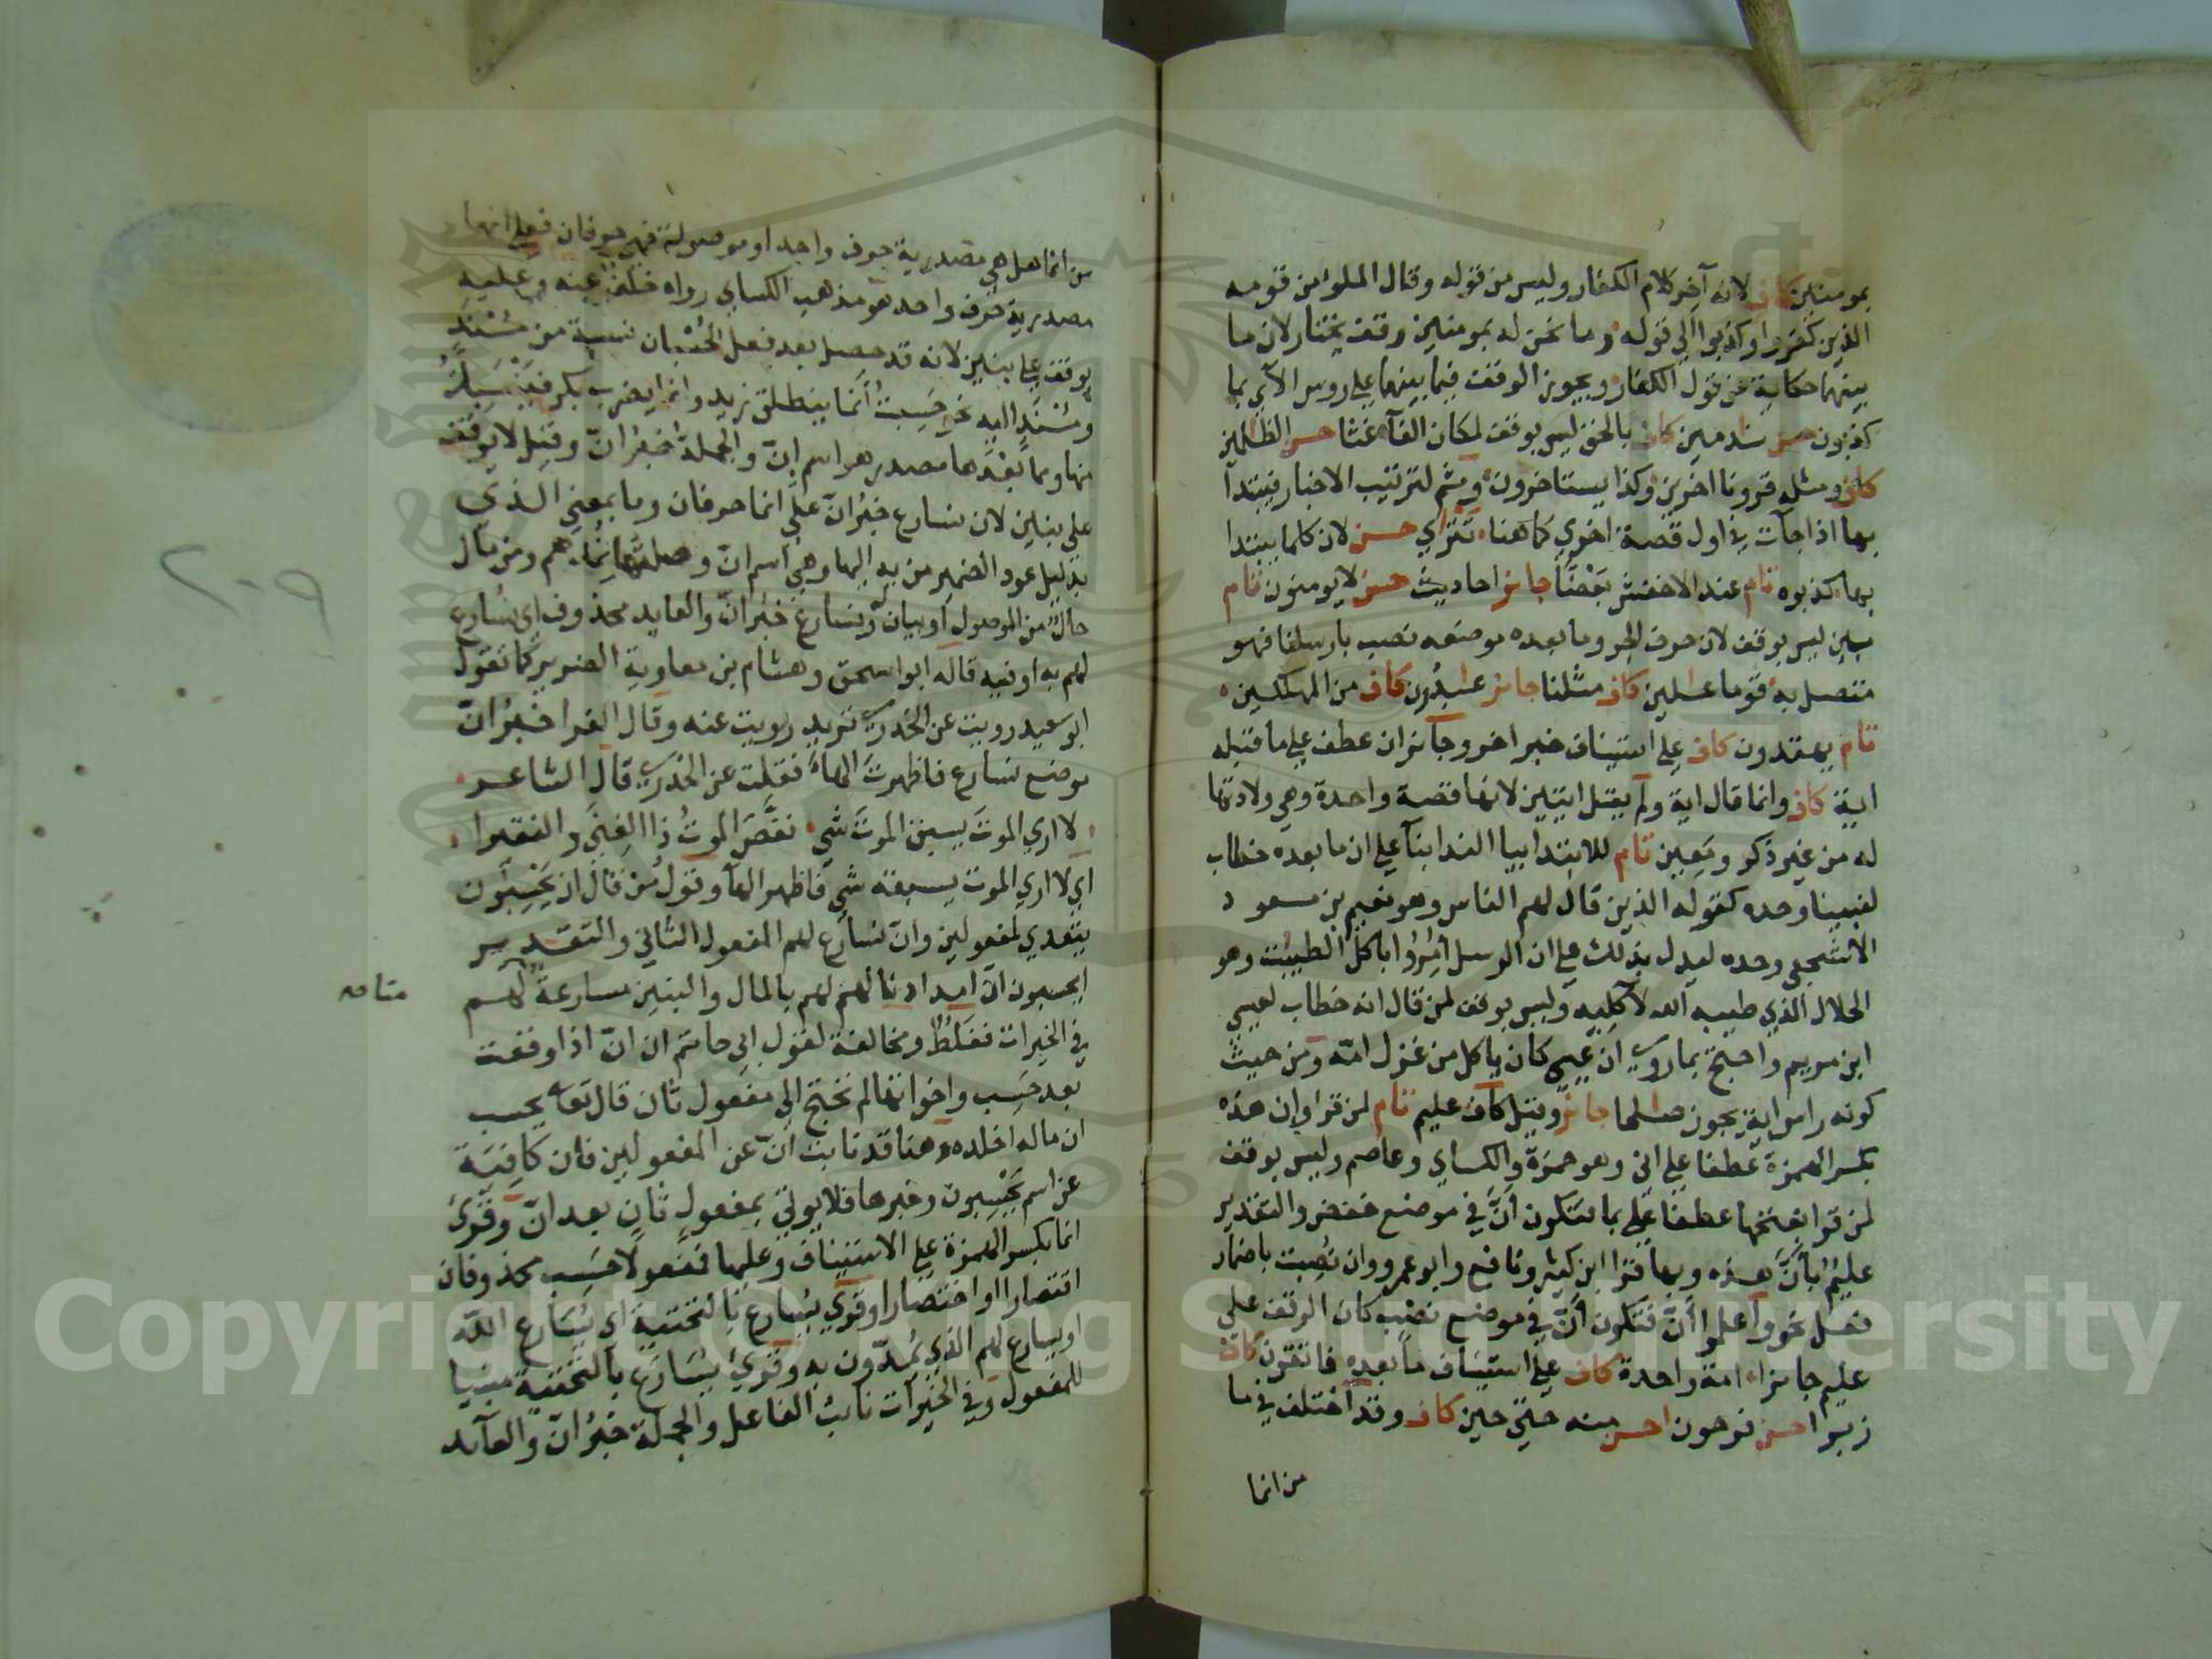 بمومنين كاف لانه آخر كلام الكفار وليس من قوله وقال الملؤ من قومه
الذين كفروا وكذبوا الي قوله وما نحن له بمومنين وقف يختار لان ما
بينهما حكاية عن قول الكفار ويجوز الوقف فيما بينهما علي روس الآي بما
كذبون حسن نادمين كاف بالحق ليس بوقف لمكان الفآ غثا حسن الظلمين
كاف ومثله قرونا اخرين وكذا يستاخرون وثم لترتيب الاخبار فيبتدآ
بها اذا جآت في اول قصة اخري كما هنا تترا ي حسن لان كلما يبتدا
بها كذبوه تام عند الاخفش بعضا جايز احاديث حسن لا يومنون تام
مبين ليس بوقف لان حرف الجر وما بعده موضعه نصب بارسلنا فهو
متصل به قوما عالين كاف مثلنا جايز عبدون كاف من المهلكين
تام يهتدون كاف علي استيناف خبر اخر وجايز ان عطف علي ما قبله
اية كاف وانما قال اية ولم يقل ايتين لانها قصة واحدة وهي ولادتها
له من غير ذكر ومعين تام للابتدا بيا الندا بنآ علي ان ما بعده خطاب
لنبينا وحده كقوله الذين قال لهم الناس وهو نعيم بن مسعود
الاشجعي وحده ليدل بذلك علي ان الرسل امروا باكل الطيبت وهو
الحلال الذي طيبه الله لآكليه وليس بوقف لمن قال انه خطاب لعيسي
ابن مريم واحتج بما روي ان عيسي كان ياكل من غزل امه ومن حيث
كونه راس اية يجوز صالحا جايز وقيل كاف عليم تام لمن قرا وإن هذه
بكسر الهمزة عطفا علي اني وهو حمزة والكساي وعاصم وليس بوقف
لمن قرا بفتحها عطفا علي بما فتكون أنّ في موضع خفض والتقدير
عليم بأنّ هذه وبها قرا ابن كثير ونافع وابو عمرو وان نصبت باضمار
فعل نحو واعلموا أنّ فتكون أنّ في موضع نصب كان الوقف علي
عليم جايزا امة واحدة كاف علي استيناف ما بعده فاتقون كاف
زبرا حسن فرحون احسن منه حتي حين كاف وقد اختلف في ما
من انما
من انما هل هي مصدرية حرف واحد او موصولة فهي حرفان فعلي انها
مصدرية حرف واحد هو مذهب الكساي رواه خلف عنه وعليه
يوقف علي بنين لانه قد حصل بعد فعل الحسبان نسبة من مسند
ومسند اليه نحو حسبت انما ينطلق زيد وانما يضرب بكر فينسبك
منها ومما بعدها مصدر هو اسم انّ والجملة خبر انّ وقيل لا يوقف
علي بنين لان نسارع خبر انّ علي انما حرفان وما بمعني الذي
بدليل عود الضمير من به اليها وهي اسم انّ وصلتها نمدهم ومن مال
حال من الموصول او بيان له ونسارع خبر انّ والعايد محذوف اي نسارع
لهم به او فيه قاله ابو اسحق وهشام بن معاوية الضرير كما تقول
ابو سعيد رويت عن الخدري تريد رويت عنه وقال الفرا خبر انّ
موضع نسارع فاظهرت الهاء فقلت عن الخدري قال الشاعر
لا اري الموت يسبق الموت شي نغص الموت ذا الغني والفقيرا
اي لا اري الموت يسبقه شي فاظهر الهآ وقول من قال ان يحسبون
يتعدي لمفعولين وانّ نسارع لهم المفعول الثاني والتقدير
ايحسبون انّ امدادنا لهم بالمال والبنين مسارعة لهم
منا
في الخيرات فغلط ومخالفة لقول ابي حاتم ان انّ اذا وقعت
بعد حسب واخواتها لم تحتج الي مفعول ثان قال تعالي يحسب
ان ماله اخلده وهنا قد نابت انّ عن المفعولين فان كافية
عن اسم يحسبون وخبرها فلا يوتي بمفعول ثان بعد انّ وقري
انما بكسر الهمزة علي الاستيناف وعليها فمفعولا حسب محذوفان
اقتصارا او اختصارا وقري يسارع بالتحتية اي يسارع الله
او يسارع لهم الذي يمدون به وقري يسارع بالتحتية مبنيا
للمفعول وفي الخيرات نائب الفاعل والجملة خبر انّ والعآيد
٢٠٩